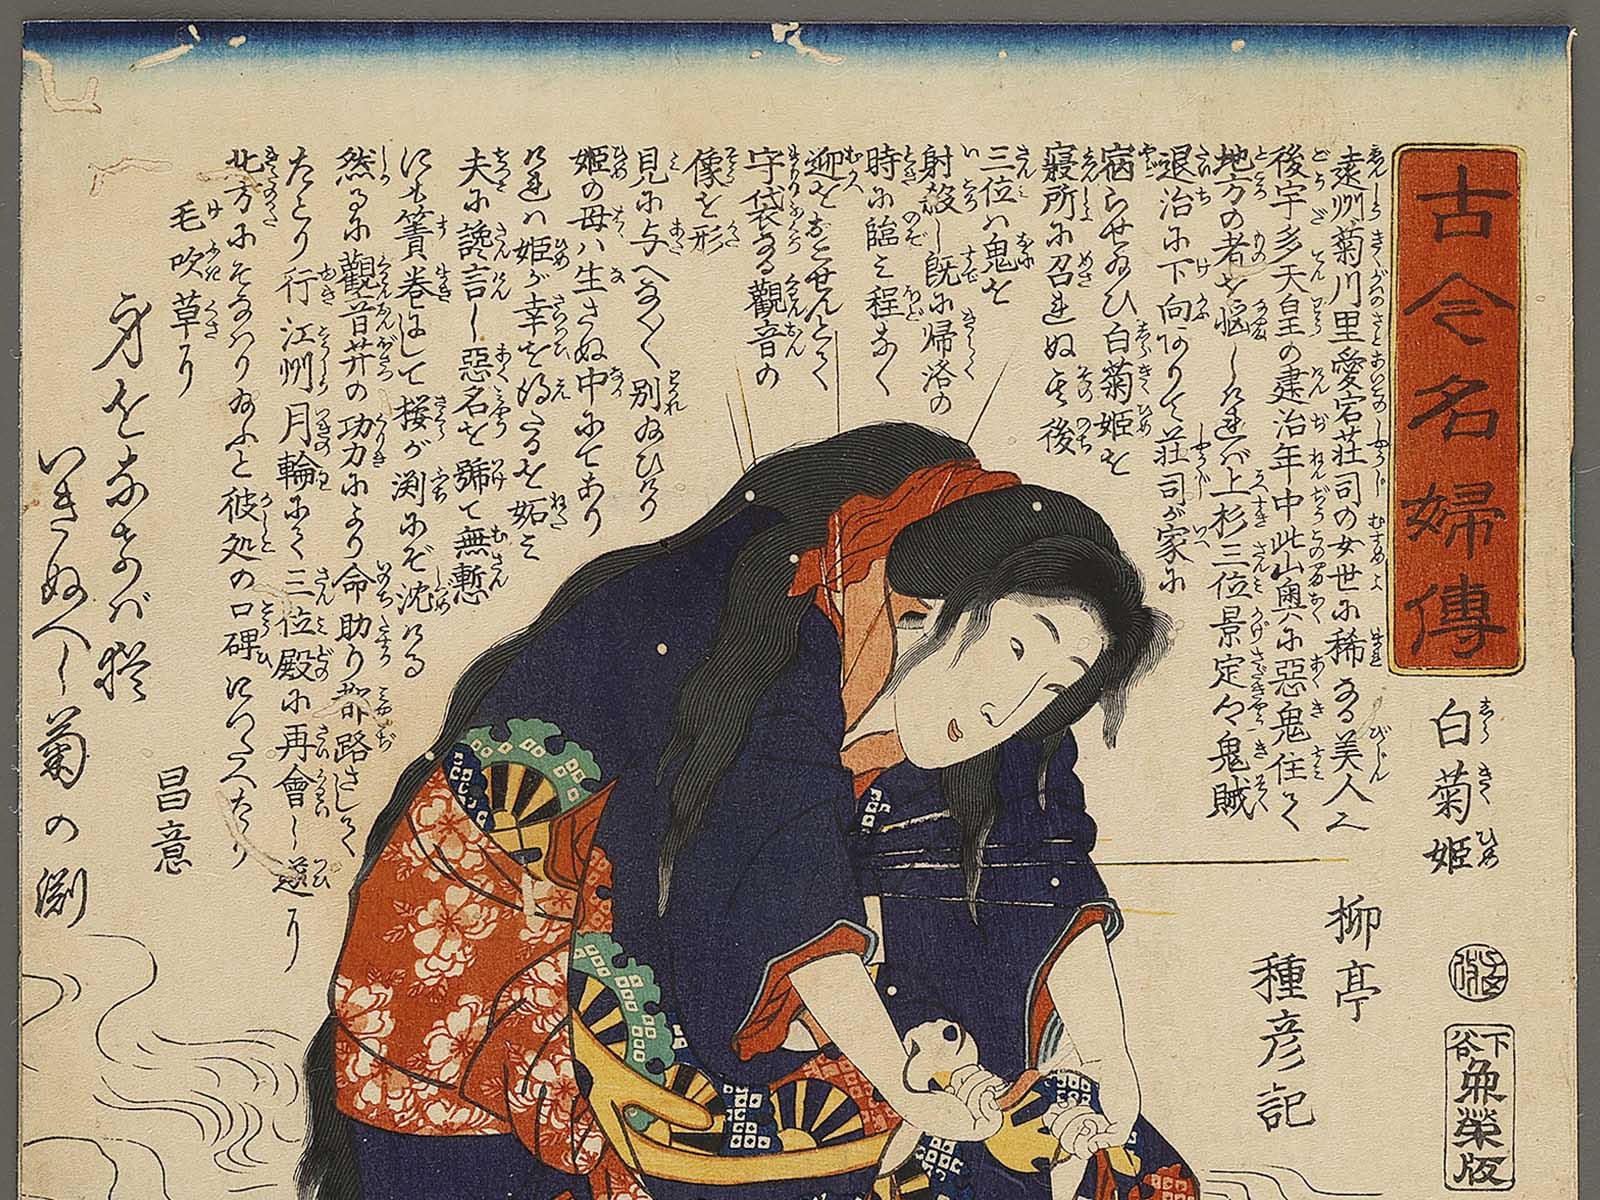 古今名婦傳
白菊姫
しらぎくひめ
柳亭
種彦記
下谷
魚榮版
遠州菊川里愛宕荘司の女世に稀なる美人に
後宇多天皇の建治年中此山奥に惡鬼住て
地方の者を悩しければ上杉三位景定々鬼賊
退治に下向ありて荘司が家に
宿らせ給ひ白菊姫を
寝所に召れぬ其後
三位ハ鬼を
射殺し既に帰洛の
時に臨み程なく
迎をおこせんとて
守袋なる觀音の
像を形
見に与へ
別給ひけり
姫の母ハ生さぬ中にてありければ
姫が幸を得たるを妬み
夫に讒言し惡名を號て無慙
にも簀卷にして桜が渕にぞ沈ける
然るに觀音
の功力により命助り都路さして
たどり行江州月輪にて三位殿に再會し遂に
北方にそなハり給ふと彼処の口碑につたへたり
毛吹草に
身をなけバ
いきぬへし菊の渕
昌意